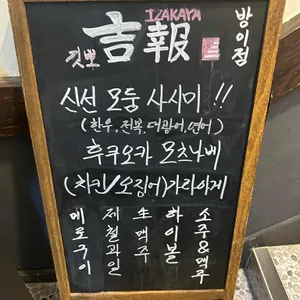 IZAKAYA
吉報
깃뽀
방이점
신선 모둠 사시미 !!
(한우, 전복, 대광어, 연어)
후쿠오카 모츠나베
(치킨/오징어)가라아게
메로구이
제철과일
生맥주
하이볼
소주&맥주